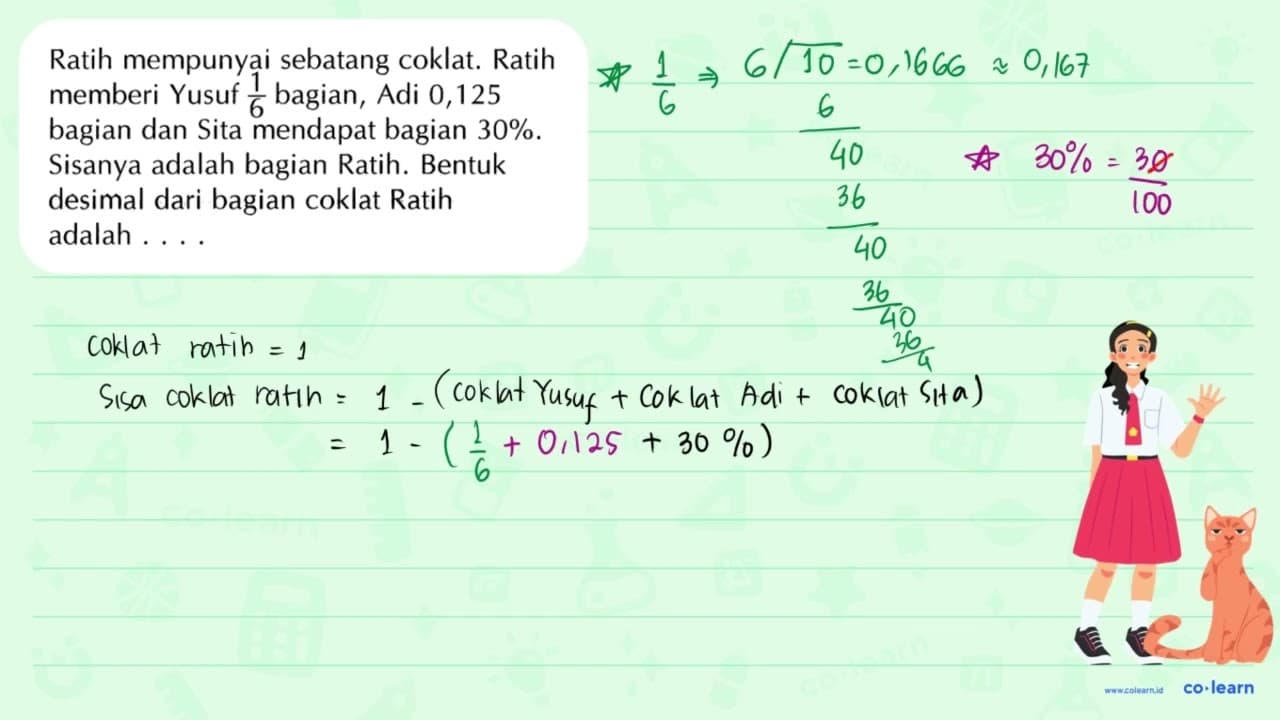 Ratih mempunyai sebatang coklat. Ratih
memberi Yusuf 1/6 bagian, Adi 0,125
bagian dan Sita mendapat bagian 30%.
Sisanya adalah bagian Ratih. Bentuk
desimal dari bagian coklat Ratih
adalah . . . .
☆ 1/6 ⇒ 6/10 = 0,1666 ≈ 0,167
6
40
36
40
36
40
36
4
☆ 30% = 30/100
coklat ratih = 1
Sisa coklat ratih = 1 - (coklat Yusuf + Coklat Adi + coklat Sita)
= 1 - (1/6 + 0,125 + 30 %)
www.colearn.id co·learn